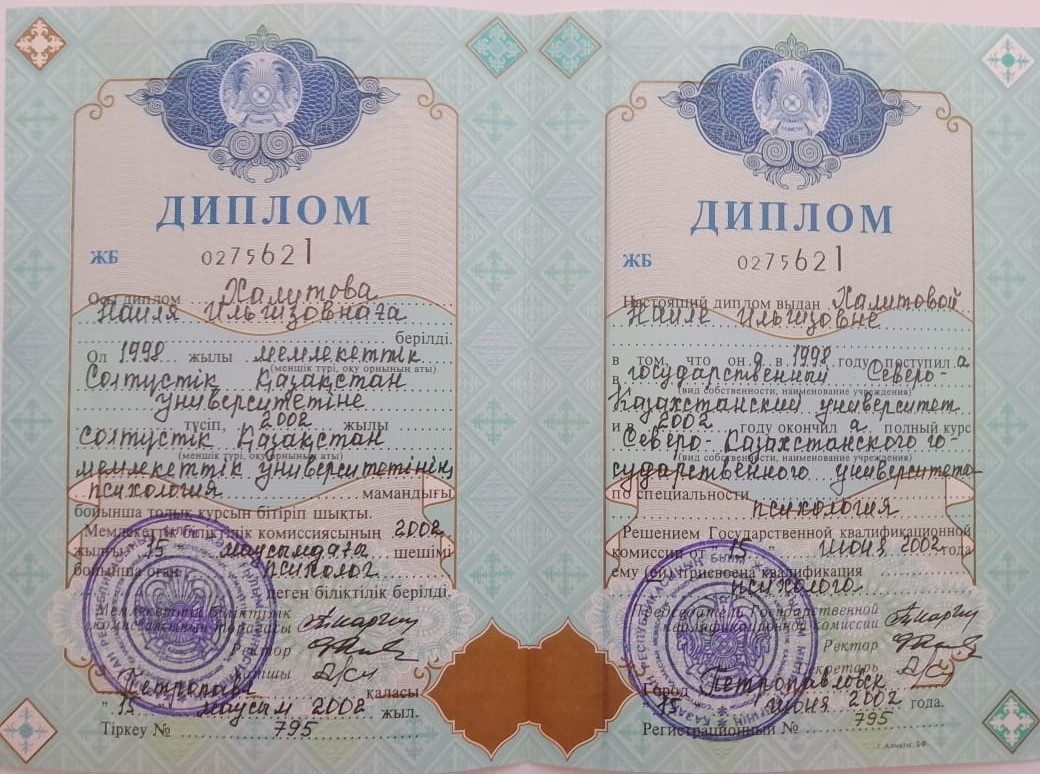 ДИПЛОМ
ЖБ 0275621
Осы диплом Халитова
Наиля Ильгизовнаға
берілді.
Ол 1998 жылы мемлекеттік
(меншік түрі, оқу орнының аты)
Солтүстік Қазақстан
университетіне
түсіп, 2002 жылы
Солтүстік Қазақстан
(меншік түрі, оқу орнының аты)
мемлекеттік университетінің
психология мамандығы
бойынша толық курсын бітіріп шықты.
Мемлекеттік біліктілік комиссиясының 2002
жылғы "15" маусымдағы шешімі
бойынша оған психолог
деген біліктілік берілді.
Мемлекеттік біліктілік
комиссиясының төрағасы
Ректор
Хатшы
Петропавл қаласы
"15" маусым 2002 жыл.
Тіркеу № 795
ДИПЛОМ
ЖБ 0275621
Настоящий диплом выдан Халитовой
Наиле Ильгизовне
в том, что он а в 1998 году поступил а
в государственный Северо-
(вид собственности, наименование учреждения)
Казахстанский университет
и в 2002 году окончил а полный курс
Северо-Казахстанского го-
(вид собственности, наименование учреждения)
сударственного университета
по специальности
психология
Решением Государственной квалификационной
комиссии от "15" июня 2002 года
ему (ей) присвоена квалификация
психолога
Председатель Государственной
квалификационной комиссии
Ректор
Секретарь
Город Петропавловск
"15" июня 2002 года.
Регистрационный № 795